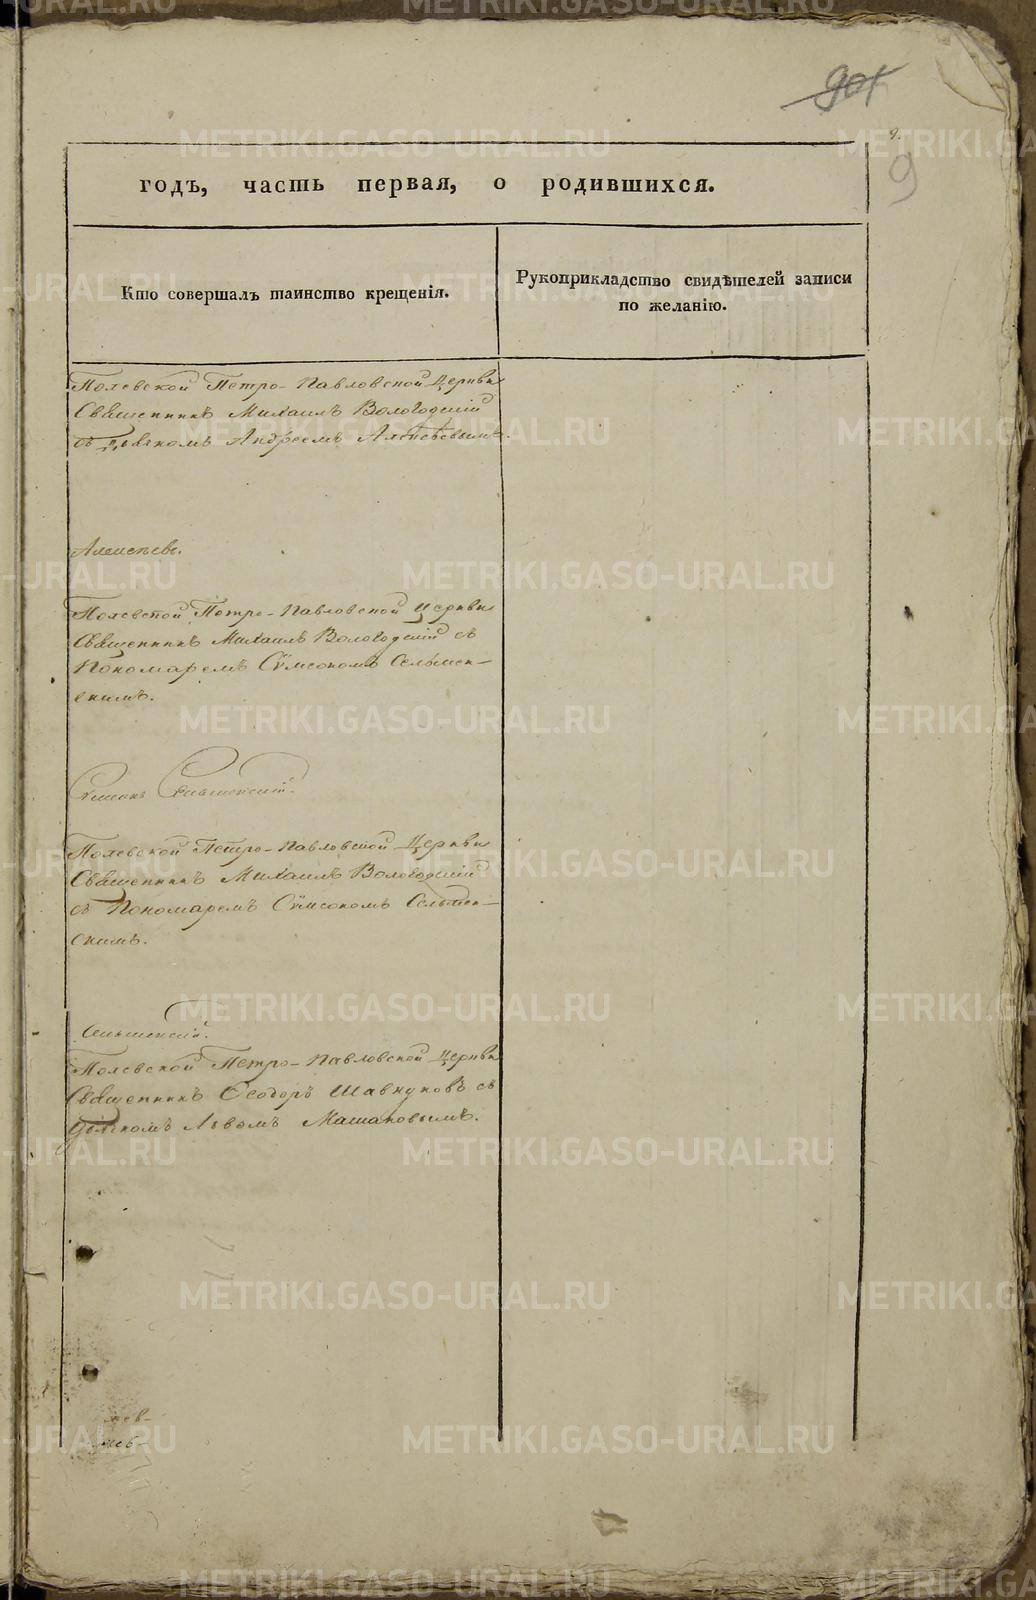 901
9.
9
годъ, часть первая, о родившихся.
Кто совершалъ таинство крещенія.
Рукоприкладство свидѣтелей записи
по желанію.
Полевской Петро-Павловской Церкви
Священникъ Михаилъ Вологодскій
съ Дьякомъ Андреемъ
Полевской Петро-Павловской Церкви
Священникъ Михаилъ Вологодскій съ
Пономаремъ Сѵмеономъ Сельмен-
скимъ.
Сельменскій.
Полевской Петро-Павловской Церкви
Священникъ Михаилъ Вологодскій
съ Пономаремъ Сѵмеономъ Сельмен-
скимъ.
Сельменскій.
Полевской Петро-Павловской Церкви
Священникъ Ѳеодоръ Шавкуновъ съ
Дьякомъ Львомъ
METRIKI.GASO-URAL.RU